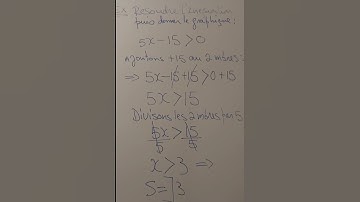 Résoudre l'inéquation
puis donner le graphique:
5x-15>0
Ajoutons +15 au 2 mbres:
⇒ 5x-15+15>0+15
5x>15
Divisons les 2 mbres par 5
5x/5 > 15/5
x>3 ⇒
S=]3